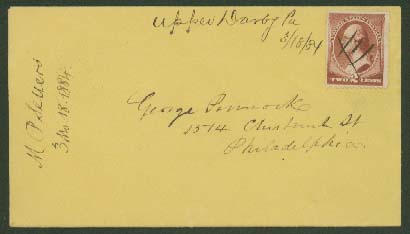 Upper Darby Pa
3/18/84
TWO CENTS
M
3 Mo. 18. 1884.
George Pennock
1514 Chestnut St
Philadelphia